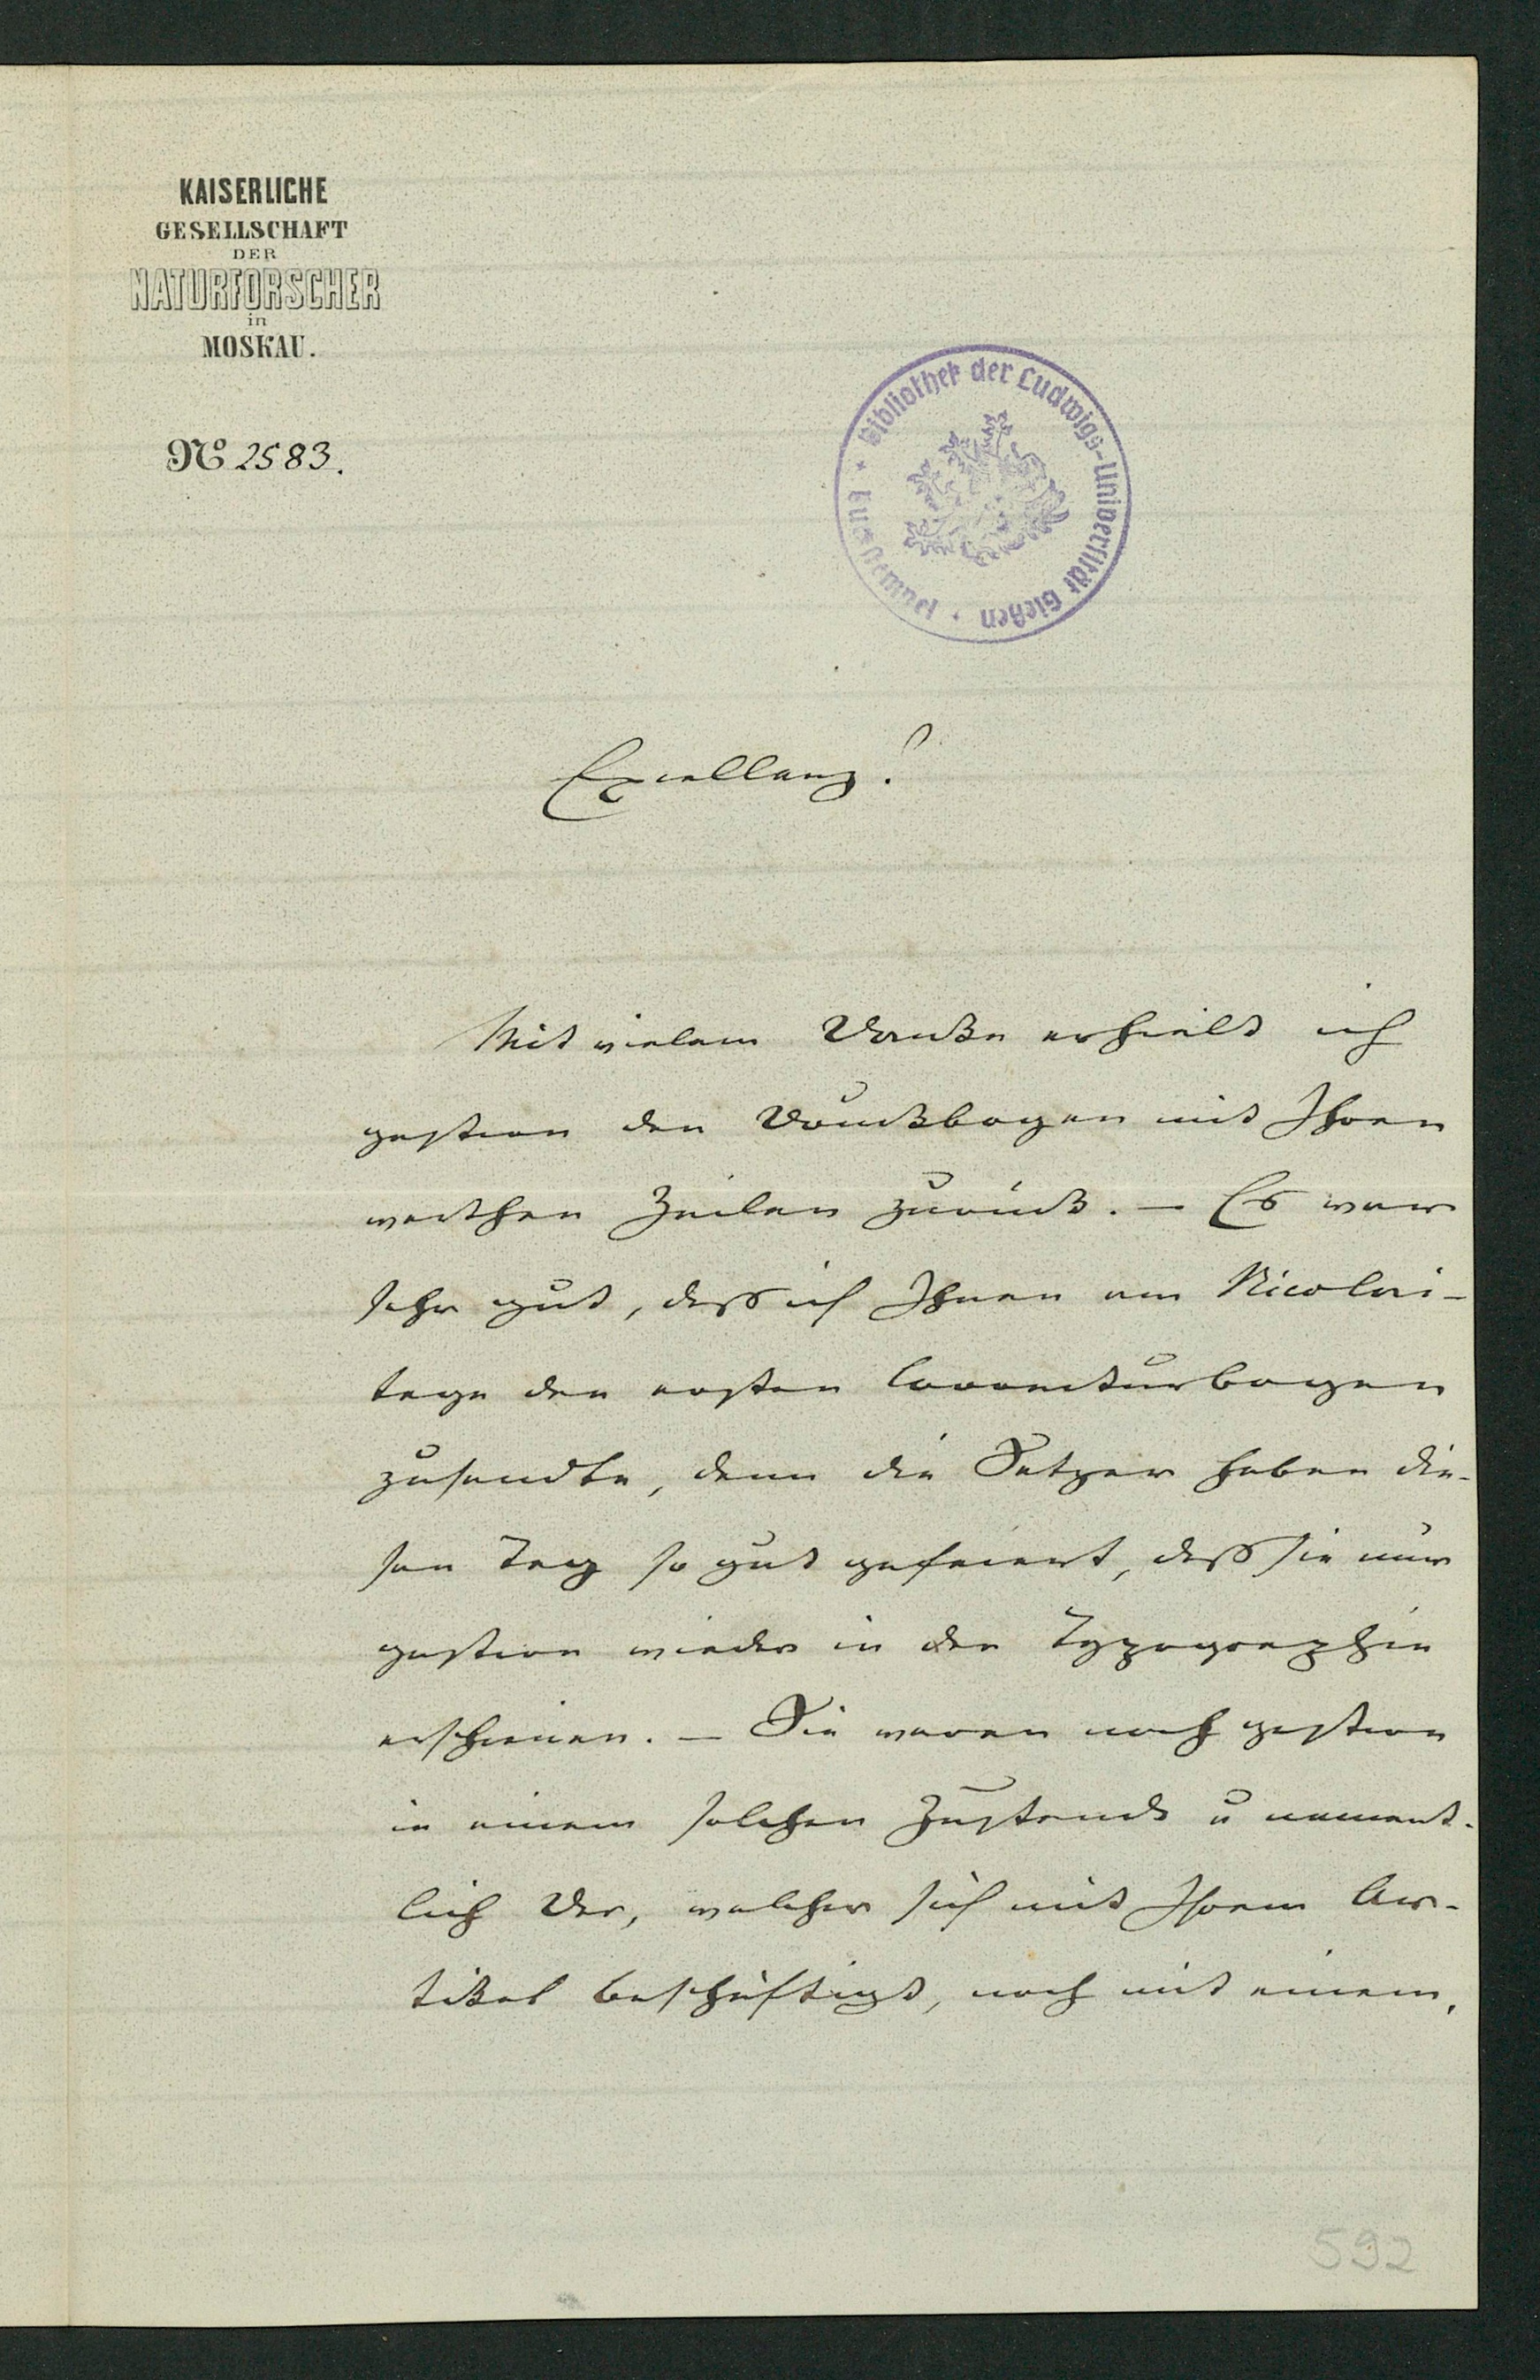 KAISERLICHE
GESELLSCHAFT
DER
NATURFORSCHER
in
MOSKAU.
No 2583.
Bibliothek der Ludwigs-Universität Gießen
Excellenz!
Mit vielem Danke erhielt ich
gestern den Druckbogen mit Ihren
werthen Zeilen zurück. — Es war
sehr gut, dass ich Ihnen am Nicolai-
tage den ersten Correcturbogen
zusandte, denn die Setzer haben die-
sen Tag so gut gefeiert, dass sie nur
gestern wieder in der Typographie
erschienen. — Sie waren noch gestern
in einem solchen Zustande u nament-
lich Der, welcher sich mit Ihrem Ar-
tikel beschäftigt, noch mit einem,
592